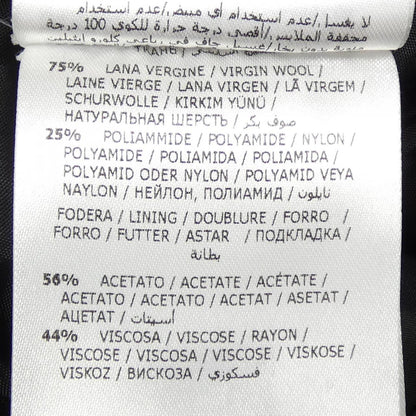 لا يغسل/عدم استخدام أي مبيض/عدم استخدام
مجففة الملابس/أقصى درجة حرارة للكوي 100 درجة
TRAME /
75% LANA VERGINE / VIRGIN WOOL /
LAINE VIERGE / LANA VIRGEN / LÃ VIRGEM /
SCHURWOLLE / KIRKIM YÜNÜ /
НАТУРАЛЬНАЯ ШЕРСТЬ / صوف بكر
25% POLIAMMIDE / POLYAMIDE / NYLON /
POLYAMIDE / POLIAMIDA / POLIAMIDA /
POLYAMID ODER NYLON / POLYAMID VEYA
NAYLON / НЕЙЛОН, ПОЛИАМИД / نايلون
FODERA / LINING / DOUBLURE / FORRO /
FORRO / FUTTER / ASTAR / ПОДКЛАДКА /
بطانة
56% ACETATO / ACETATE / ACÉTATE /
ACETATO / ACETATO / ACETAT / ASETAT /
АЦЕТАТ / أسيتات
44% VISCOSA / VISCOSE / RAYON /
VISCOSE / VISCOSA / VISCOSE / VISKOSE /
VISKOZ / ВИСКОЗА / فسكوزي